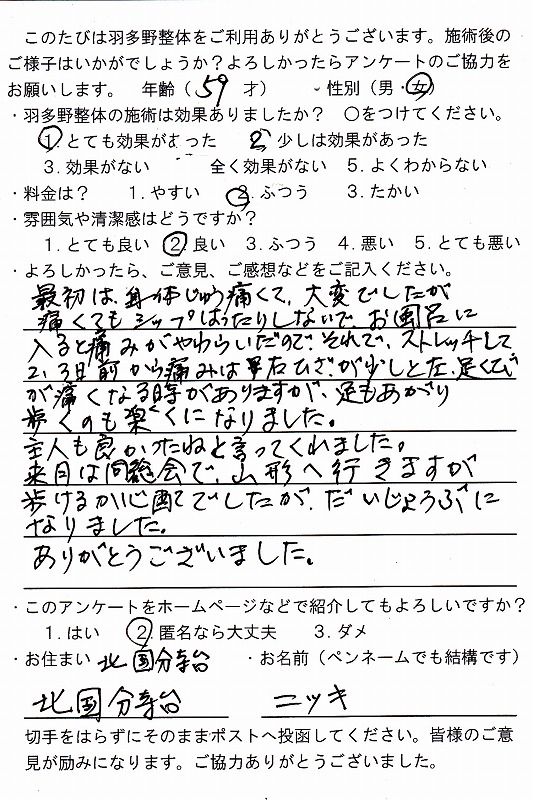 このたびは羽多野整体をご利用ありがとうございます。施術後の
ご様子はいかがでしょうか？よろしかったらアンケートのご協力を
お願いします。　年齢（ 59 才）　　性別（男・女）
・羽多野整体の施術は効果ありましたか？　○をつけてください。
1. とても効果があった　2. 少しは効果があった
3. 効果がない　　全く効果がない　5. よくわからない
・料金は？　1. やすい　2. ふつう　3. たかい
・雰囲気や清潔感はどうですか？
1. とても良い　2. 良い　3. ふつう　4. 悪い　5. とても悪い
・よろしかったら、ご意見、ご感想などをご記入ください。
最初は、身体じゅう痛くて、大変でしたが
痛くてもシップはったりしないで、お風呂に
入ると痛みがやわらいだので、それで、ストレッチして
2、3日前から痛みは右ひざが少しと左、足くび
が痛くなる時がありますが、足もあがり
歩くのも楽くになりました。
主人も良かったねと言ってくれました。
来月は同総会で、山形へ行きますが
歩けるか心配でしたが、だいじょうぶに
なりました。
ありがとうございました。
・このアンケートをホームページなどで紹介してもよろしいですか？
1. はい　2. 匿名なら大丈夫　3. ダメ
・お住まい　北国分寺台　・お名前（ペンネームでも結構です）
北国分寺台　ニッキ
切手をはらずにそのままポストへ投函してください。皆様のご意
見が励みになります。ご協力ありがとうございました。